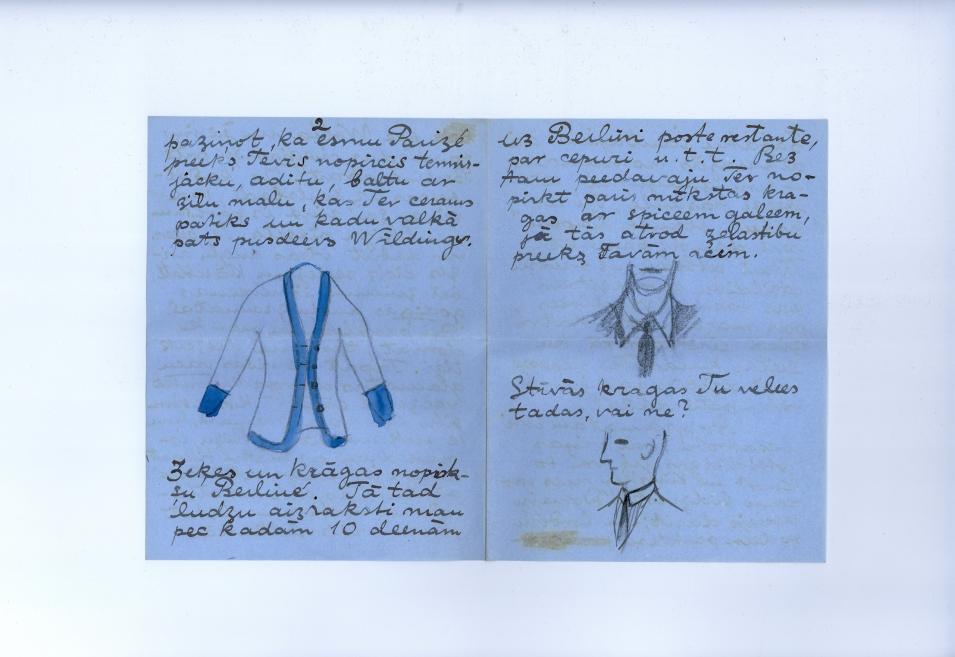 2
paziņot, ka esmu Parizē
preeks Tevis nopircis tennis-
jacku, aditu, baltu ar
zilu malu, kas Tev cerams
patiks un kadu valkā
pats pusdeevs Wildings.
Zeķes un krāgas nopirk-
šu Berlinē. Tā tad
ludzu aizraksti man
pec kadām 10 deenām
uz Berlini poste restante,
par cepuri u.t.t. Bez
tam peedavaju Tev no-
pirkt pāris mīkstas kra-
gas ar spiceem galeem,
jā tās atrod želastibu
preekš Tavām acīm.
Stīvās kragas Tu velees
tadas, vai ne?